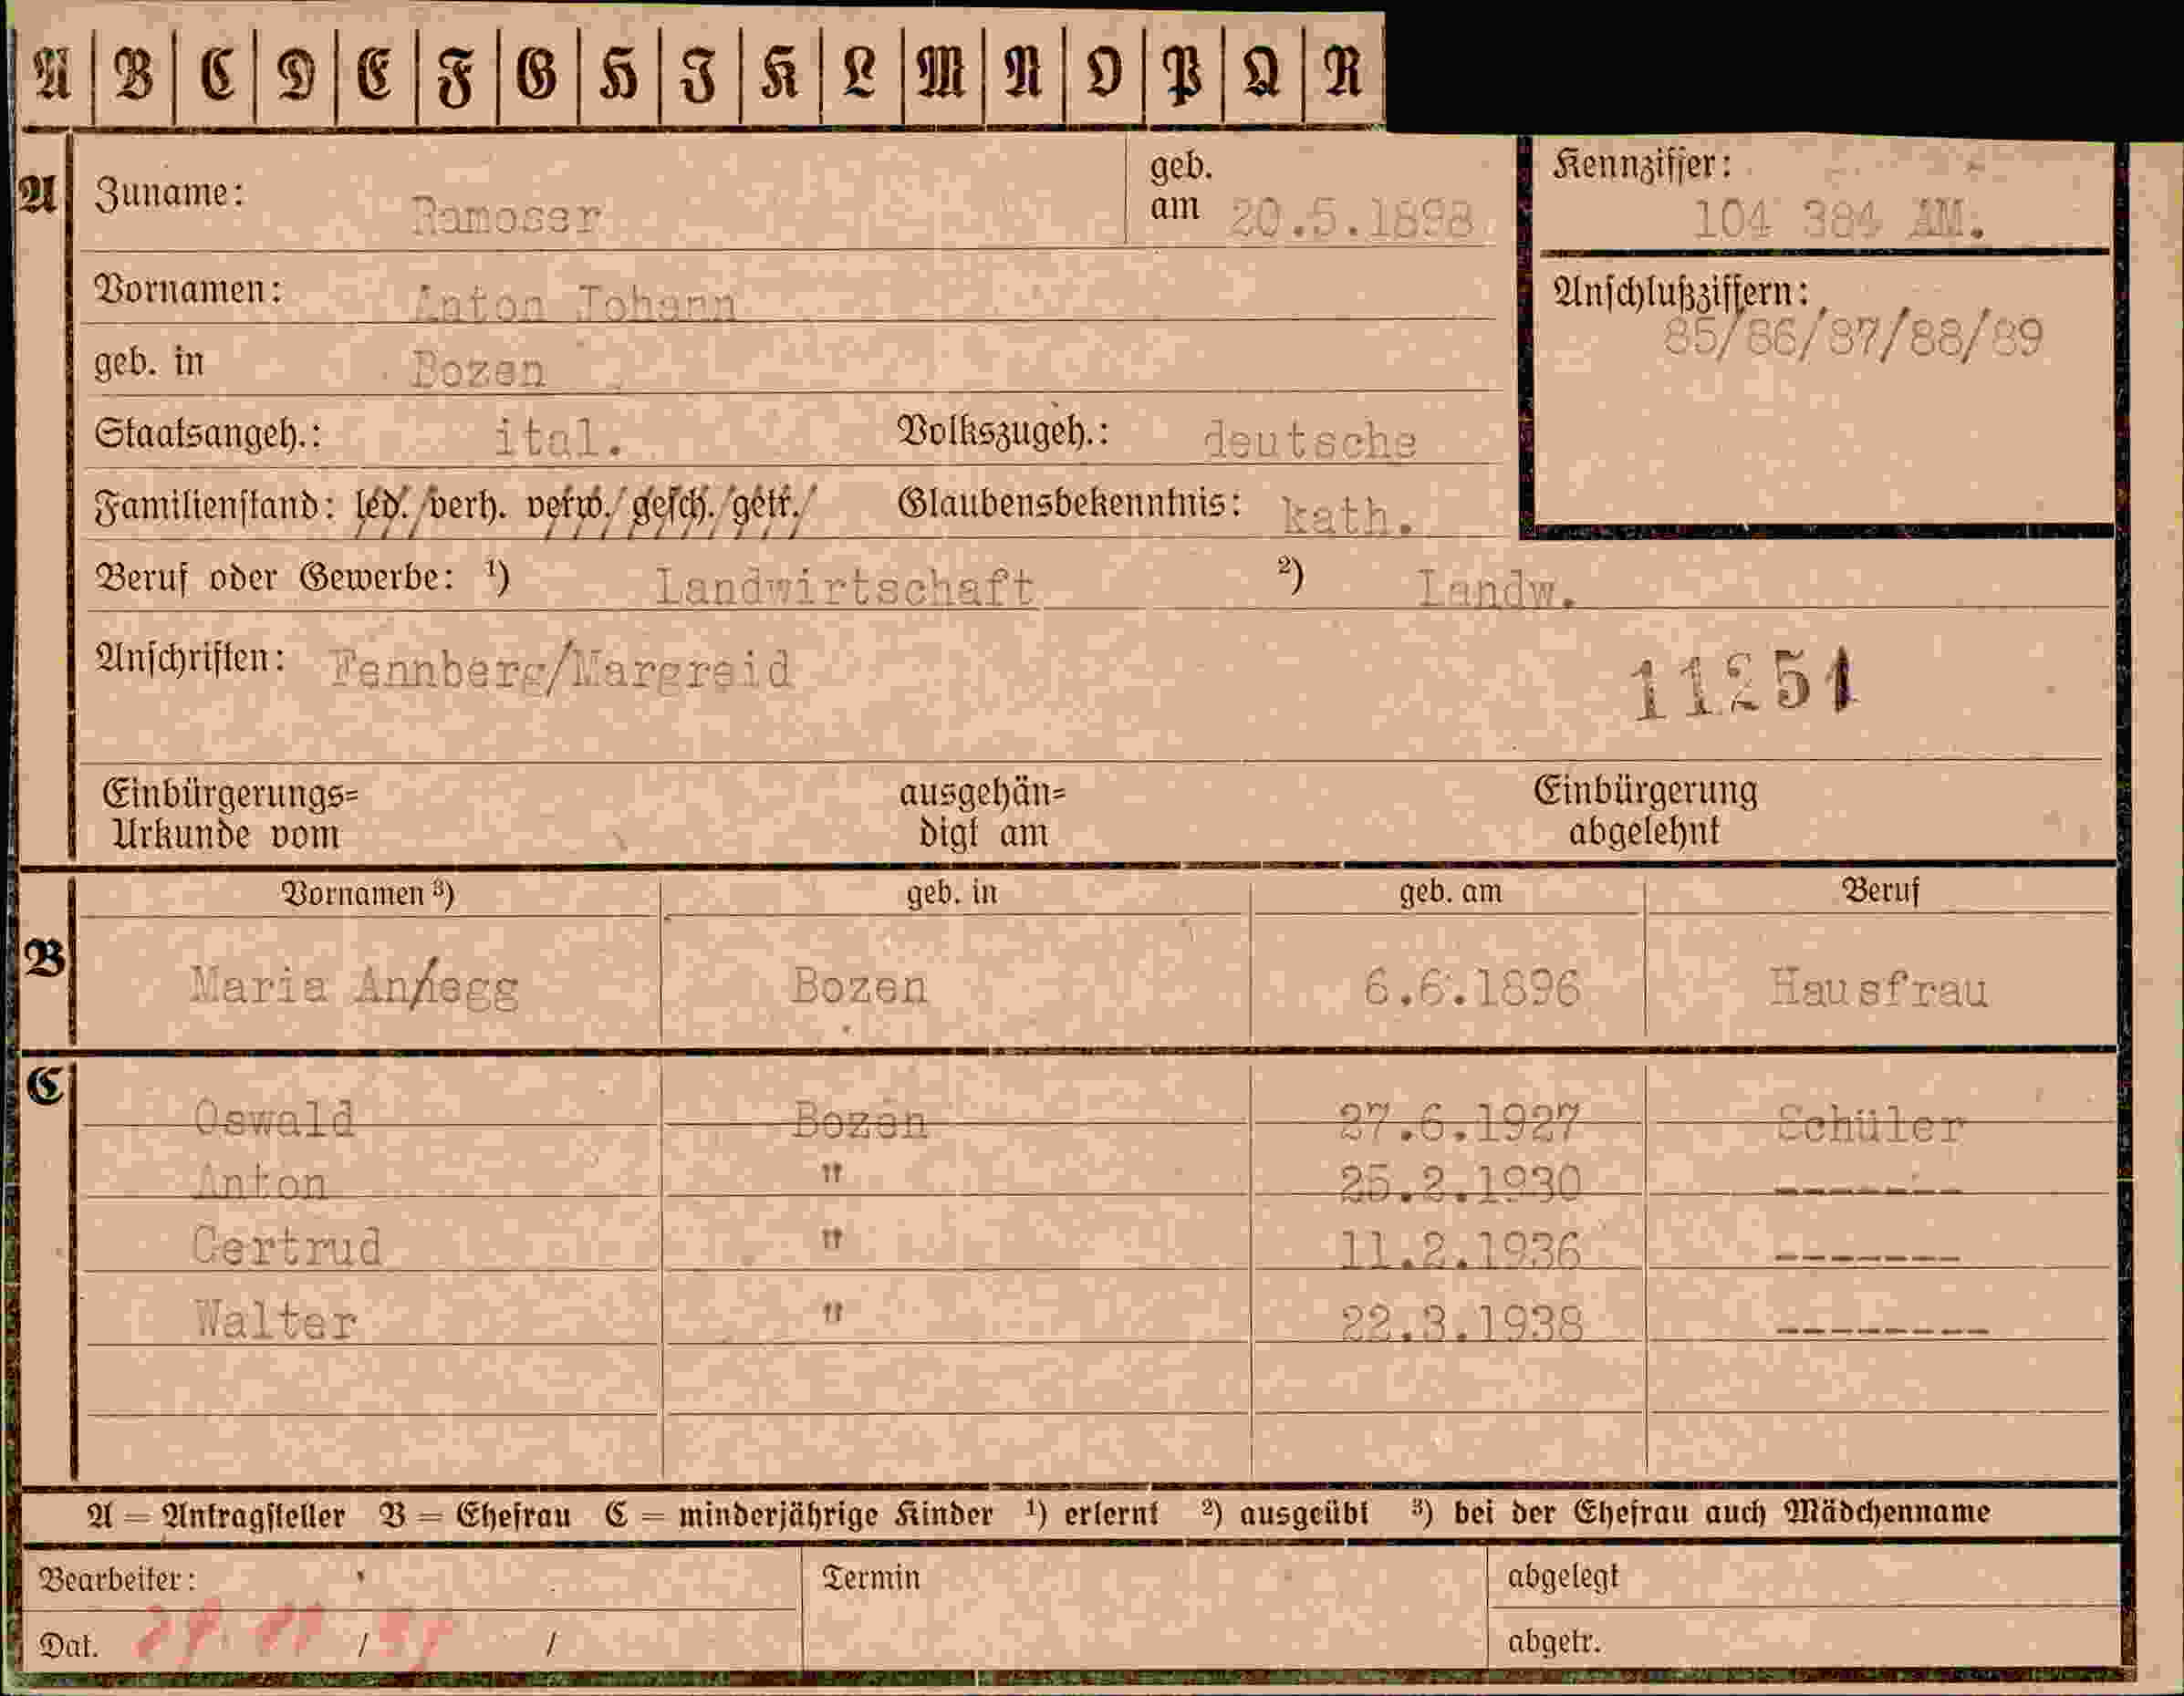 A B C D E F G H I K L M N O P Q R
A Zuname: Ramoser geb. am 20.5.1898 Kennziffer: 104 384 AM.
Vornamen: Anton Johann Anschlußziffern: 85/86/87/88/89
geb. in Bozen
Staatsangeh.: ital. Volkszugeh.: deutsche
Familienstand: led. verh. verw. gesch. getr. Glaubensbekenntnis: kath.
Beruf oder Gewerbe: ¹) Landwirtschaft ²) Landw.
Anschriften: Fennberg/Margreid 11251
Einbürgerungs= ausgehän= Einbürgerung
Urkunde vom digt am abgelehnt
Vornamen ³) geb. in geb. am Beruf
B Maria An/egg Bozen 6.6.1896 Hausfrau
C Oswald Bozen 27.6.1927 Schüler
Anton " 25.2.1930 -------
Gertrud " 11.2.1936 -------
Walter " 22.3.1938 --------
A = Antragsteller B = Ehefrau C = minderjährige Kinder ¹) erlernt ²) ausgeübt ³) bei der Ehefrau auch Mädchenname
Bearbeiter: Termin abgelegt
Dat. / / abgetr.